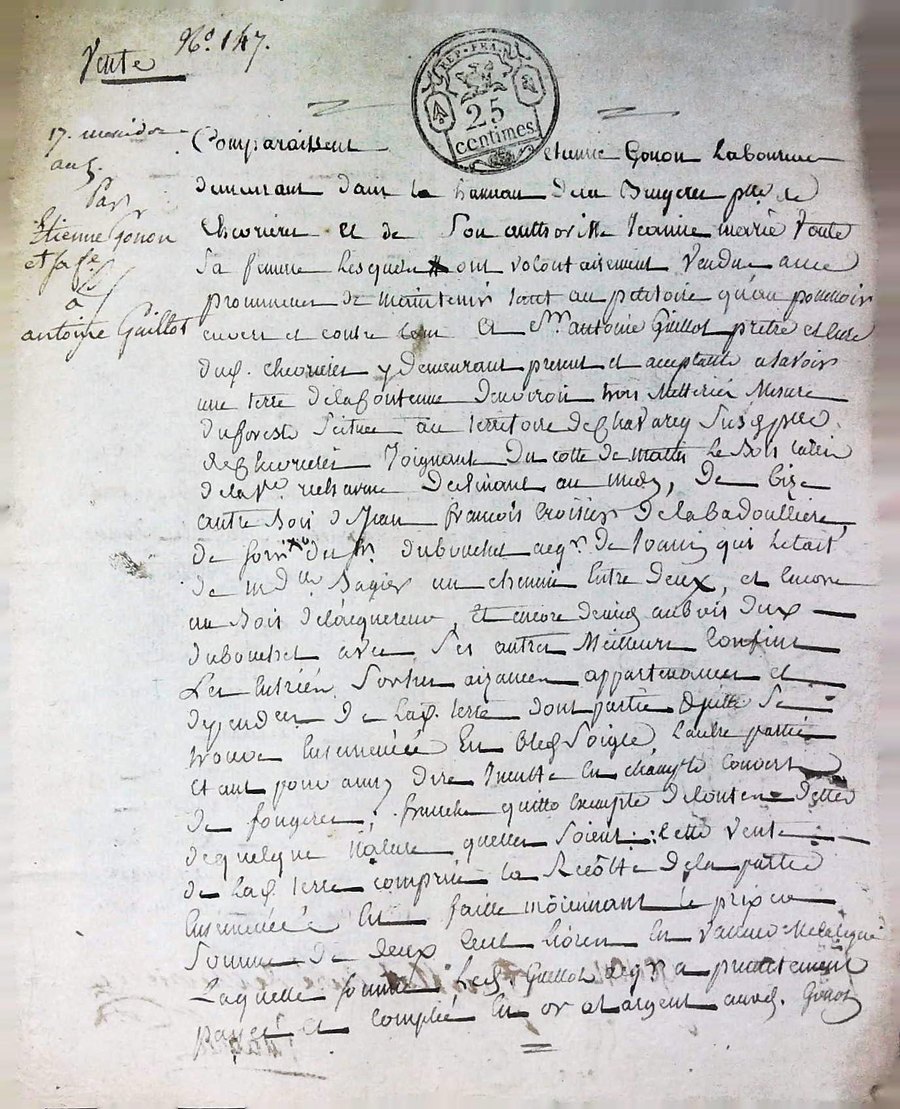 Vente No. 147.
REP. FRA.
25
centimes
17. messidor
an 5.
Par
Etienne Gonon
et sa fe
a
antoine Guillot
Comparaissent Etienne Gonon Laboureur
demeurant dans le hameau des Bruyeres psse de
Chevrieres et de Son authorité Jeanne marie
Sa femme Lesquels ont volontairement Vendu avec
promesse de maintenir tant au petitoire qu'au possessoir
envers et contre tous a Sr. antoine Guillot pretre et Curé
dud. Chevrieres y demeurant present et acceptant a Savoir
une terre de la Contenue d'environ trois Metterées Mesure
du forest Scituée au territoire de Chavarey Susd. psse
de Chevrieres Joignant du cotté de matin le Bois
de la declinant au midy, de bize
autre Bois de Jean françois Croisier de la badoulliere,
de Soir du Sr. dubouchet de qui Letait
de md.lle un chemin Entre deux, et Encore
un Bois de l'acquereur, Et encore de midy au Bois dud.
dubouchet avec Ses autres Meilleurs Confins
Les Entrées Sorties aizances appartenances et
dependces de lad. terre dont partie d'icelle Se
trouve Ensemencée En bled Soigle, L'autre partie
Etant pour ainsy dire Inculte En champ couvert
de fougeres, franche quitte Exempte de toutes dettes
de quelque Nature quelles Soient: Cette Vente
de lad. terre comprise la Recolte de la partie
Ensemencée Est faitte moiennant le prix et
Somme de deux Cent Livres En Valeur Metalique
Laquelle Somme Led. Guillot acqr. a presentement
Payée et comptée En or et argent auxd. Gonon